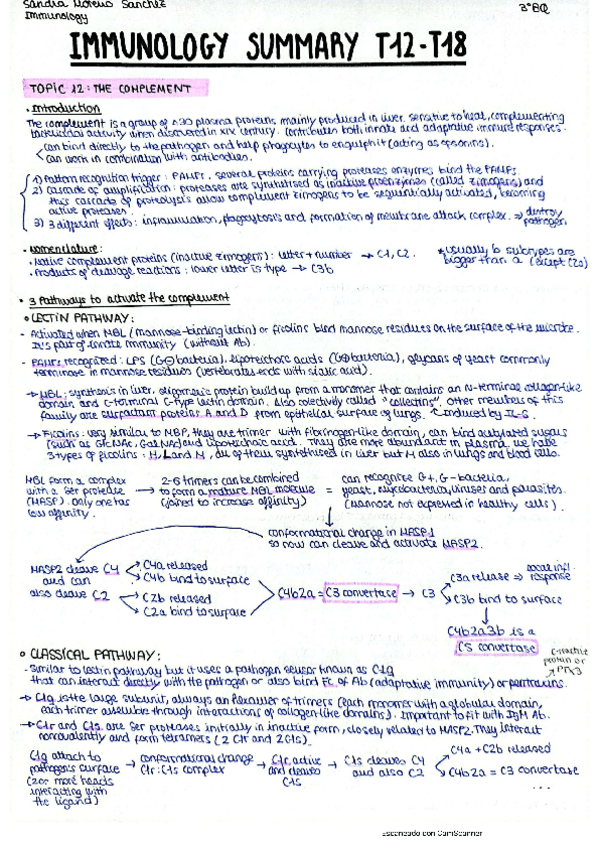 Sandra Moreno Sánchez
Immunology
3ºBQ
IMMUNOLOGY SUMMARY T12-T18
TOPIC 12: THE COMPLEMENT
• Introduction
The complement is a group of ≈30 plasma proteins mainly produced in liver. sensitive to heat, complementing
bactericidal activity when discovered in XIX century. Contributes both innate and adaptive immune responses.
can bind directly to the pathogen and help phagocytes to engulf it (acting as opsonins).
can work in combination with antibodies.
1) Pattern recognition trigger: PAMPs. several proteins carrying proteases enzymes bind the PAMPs.
2) Cascade of amplification: proteases are synthetised as inactive proenzymes (called zimogens) and
this cascade of proteolysis allow complement zimogens to be sequentially activated, becoming
active proteases.
3) 3 different effects: inflammation, phagocytosis and formation of membrane attack complex. ⇒ destroy
pathogen
• Nomenclature:
• Native complement proteins (inactive zimogens): letter + number → C1, C2.
• Products of cleavage reactions: lower letter is type → C3b
*usually b subtypes are
bigger than a (except C2a)
• 3 Pathways to activate the complement
○ LECTIN PATHWAY:
- Activated when MBL (mannose-binding lectin) or ficolins bind mannose residues on the surface of the microbe.
It's part of innate immunity (without Ab).
- PAMPs recognized: LPS (G⊖ bacteria), lipoteichoic acids (G⊕ bacteria), glycans of yeast commonly
terminate in mannose residues (vertebrates ends with sialic acid).
→ MBL: synthesis in liver. oligomeric protein build up from a monomer that contains an N-terminal collagen-like
domain and C-terminal C-type lectin domain. Also colectively called "collectins", other members of this
family are surfactant proteins A and D from epithelial surface of lungs. ↑ induced by IL-6.
→ Ficolins: very similar to MBP, they are trimer with fibrinogen-like domain, can bind acetylated sugars
(such as GlcNAc, GalNAc) and lipoteichoic acid. They are more abundant in plasma. we have
3 types of ficolins: H, L and M, all of them synthetised in liver but M also in lungs and blood cells.
MBL form a complex
with a Ser protease
(MASP). Only one has
low affinity.
2-6 trimers can be combined
→ to form a mature MBL molecule =
(joined to increase affinity)
can recognize G+, G- bacteria,
yeast, mycobacteria, viruses and parasites.
(Mannose not expressed in healthy cells).
conformational change in MASP1
so now can cleave and activate MASP2.
MASP2 cleave C4
and can
also cleave C2
C4a released
C4b bind to surface
C2b released
C2a bind to surface
C4b2a = C3 convertase → C3
C3a release ⇒ local infl. response
C3b bind to surface
C4b2a3b is a
C5 convertase
○ CLASSICAL PATHWAY:
- Similar to lectin pathway but it uses a pathogen sensor known as C1q
that can interact directly with the pathogen or also bind Fc of Ab (adaptive immunity) or pentraxins.
C-reactive
protein or
PTX3
→ C1q is the large subunit, always an hexamer of trimers (each monomer with a globular domain,
each trimer assemble through interactions of collagen-like domains). Important to fit with IgM Ab.
→ C1r and C1s are Ser proteases initially in inactive form, closely related to MASP2. They interact
noncovalently and form tetramers (2 C1r and 2 C1s).
C1q attach to
pathogen's surface
(2 or more heads
interacting with
the ligand)
→ conformational change
C1r:C1s complex
→ C1r active
and cleaves
C1s
→ C1s cleaves C4
and also C2
C4a + C2b released
C4b2a = C3 convertase
...
Escaneado con CamScanner